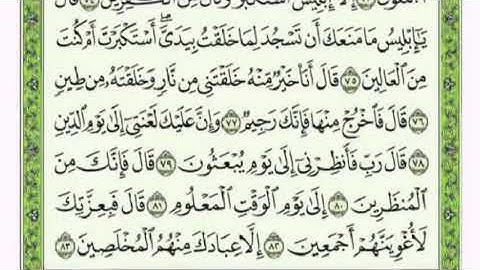 إِلَّآ إِبۡلِيسَ ٱسۡتَكۡبَرَ وَكَانَ مِنَ ٱلۡكَٰفِرِينَ ٧٤ قَالَ
يَٰٓإِبۡلِيسُ مَا مَنَعَكَ أَن تَسۡجُدَ لِمَا خَلَقۡتُ بِيَدَيَّۖ أَسۡتَكۡبَرۡتَ أَمۡ كُنتَ
مِنَ ٱلۡعَالِينَ ٧٥ قَالَ أَنَا۠ خَيۡرٞ مِّنۡهُ خَلَقۡتَنِي مِن نَّارٖ وَخَلَقۡتَهُۥ مِن طِينٖ
٧٦ قَالَ فَٱخۡرُجۡ مِنۡهَا فَإِنَّكَ رَجِيمٞ ٧٧ وَإِنَّ عَلَيۡكَ لَعۡنَتِيٓ إِلَىٰ يَوۡمِ ٱلدِّينِ
٧٨ قَالَ رَبِّ فَأَنظِرۡنِيٓ إِلَىٰ يَوۡمِ يُبۡعَثُونَ ٧٩ قَالَ فَإِنَّكَ مِنَ
ٱلۡمُنظَرِينَ ٨٠ إِلَىٰ يَوۡمِ ٱلۡوَقۡتِ ٱلۡمَعۡلُومِ ٨١ قَالَ فَبِعِزَّتِكَ
لَأُغۡوِيَنَّهُمۡ أَجۡمَعِينَ ٨٢ إِلَّا عِبَادَكَ مِنۡهُمُ ٱلۡمُخۡلَصِينَ ٨٣